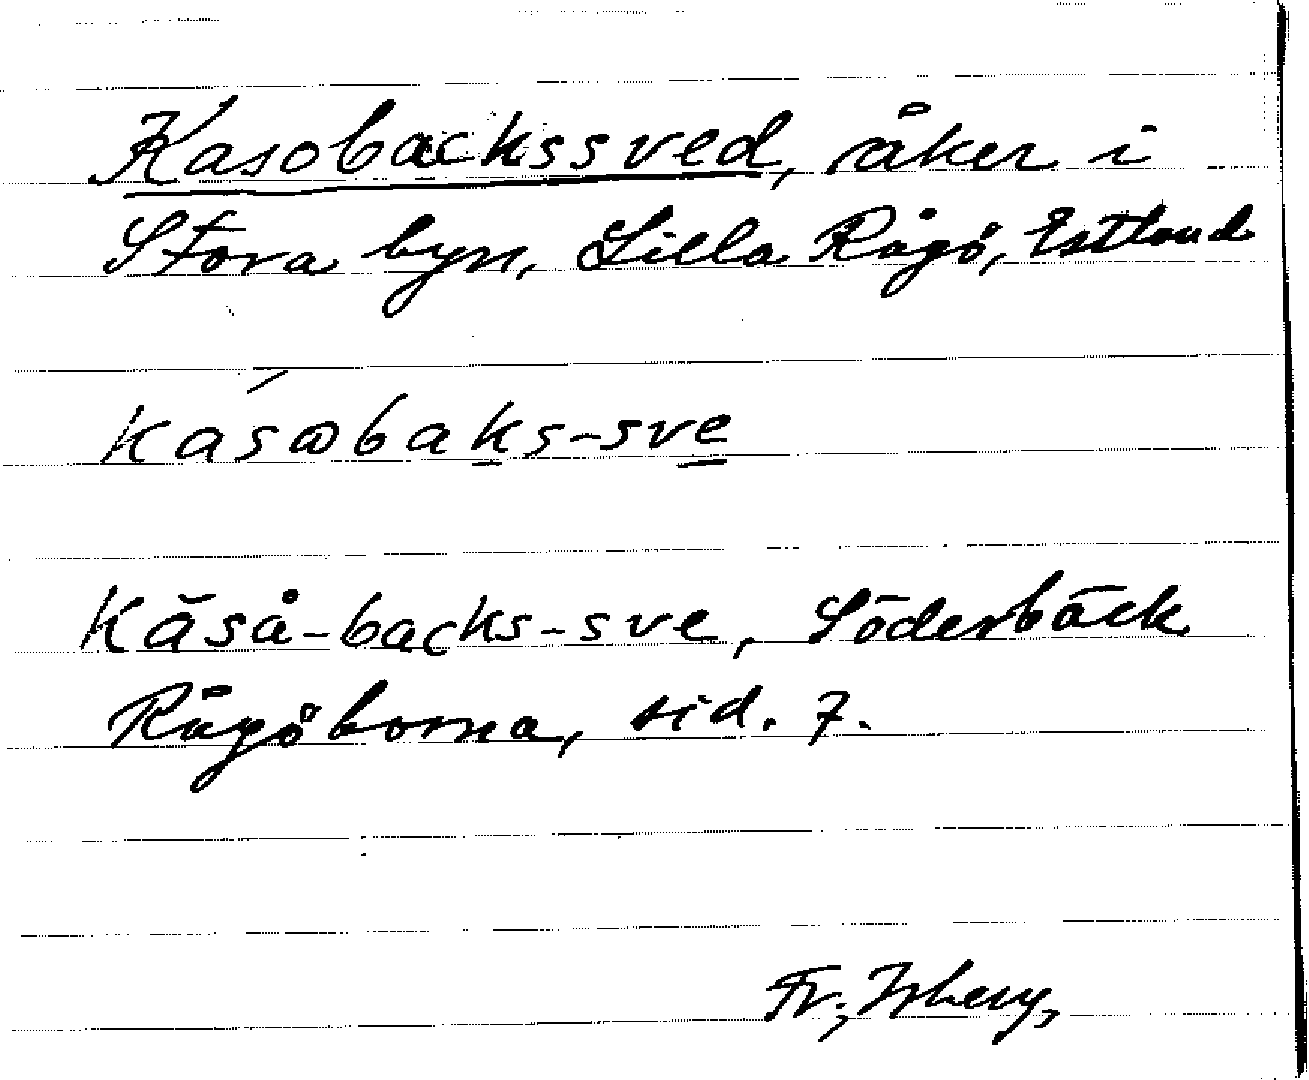 Kasobackssved, åker i
Stora byn, Lilla Rågö, Estland
kásωbaks-sve
Kăså-backs-sve, Söderbäck
Rågöborna, sid. 7.
Fr;